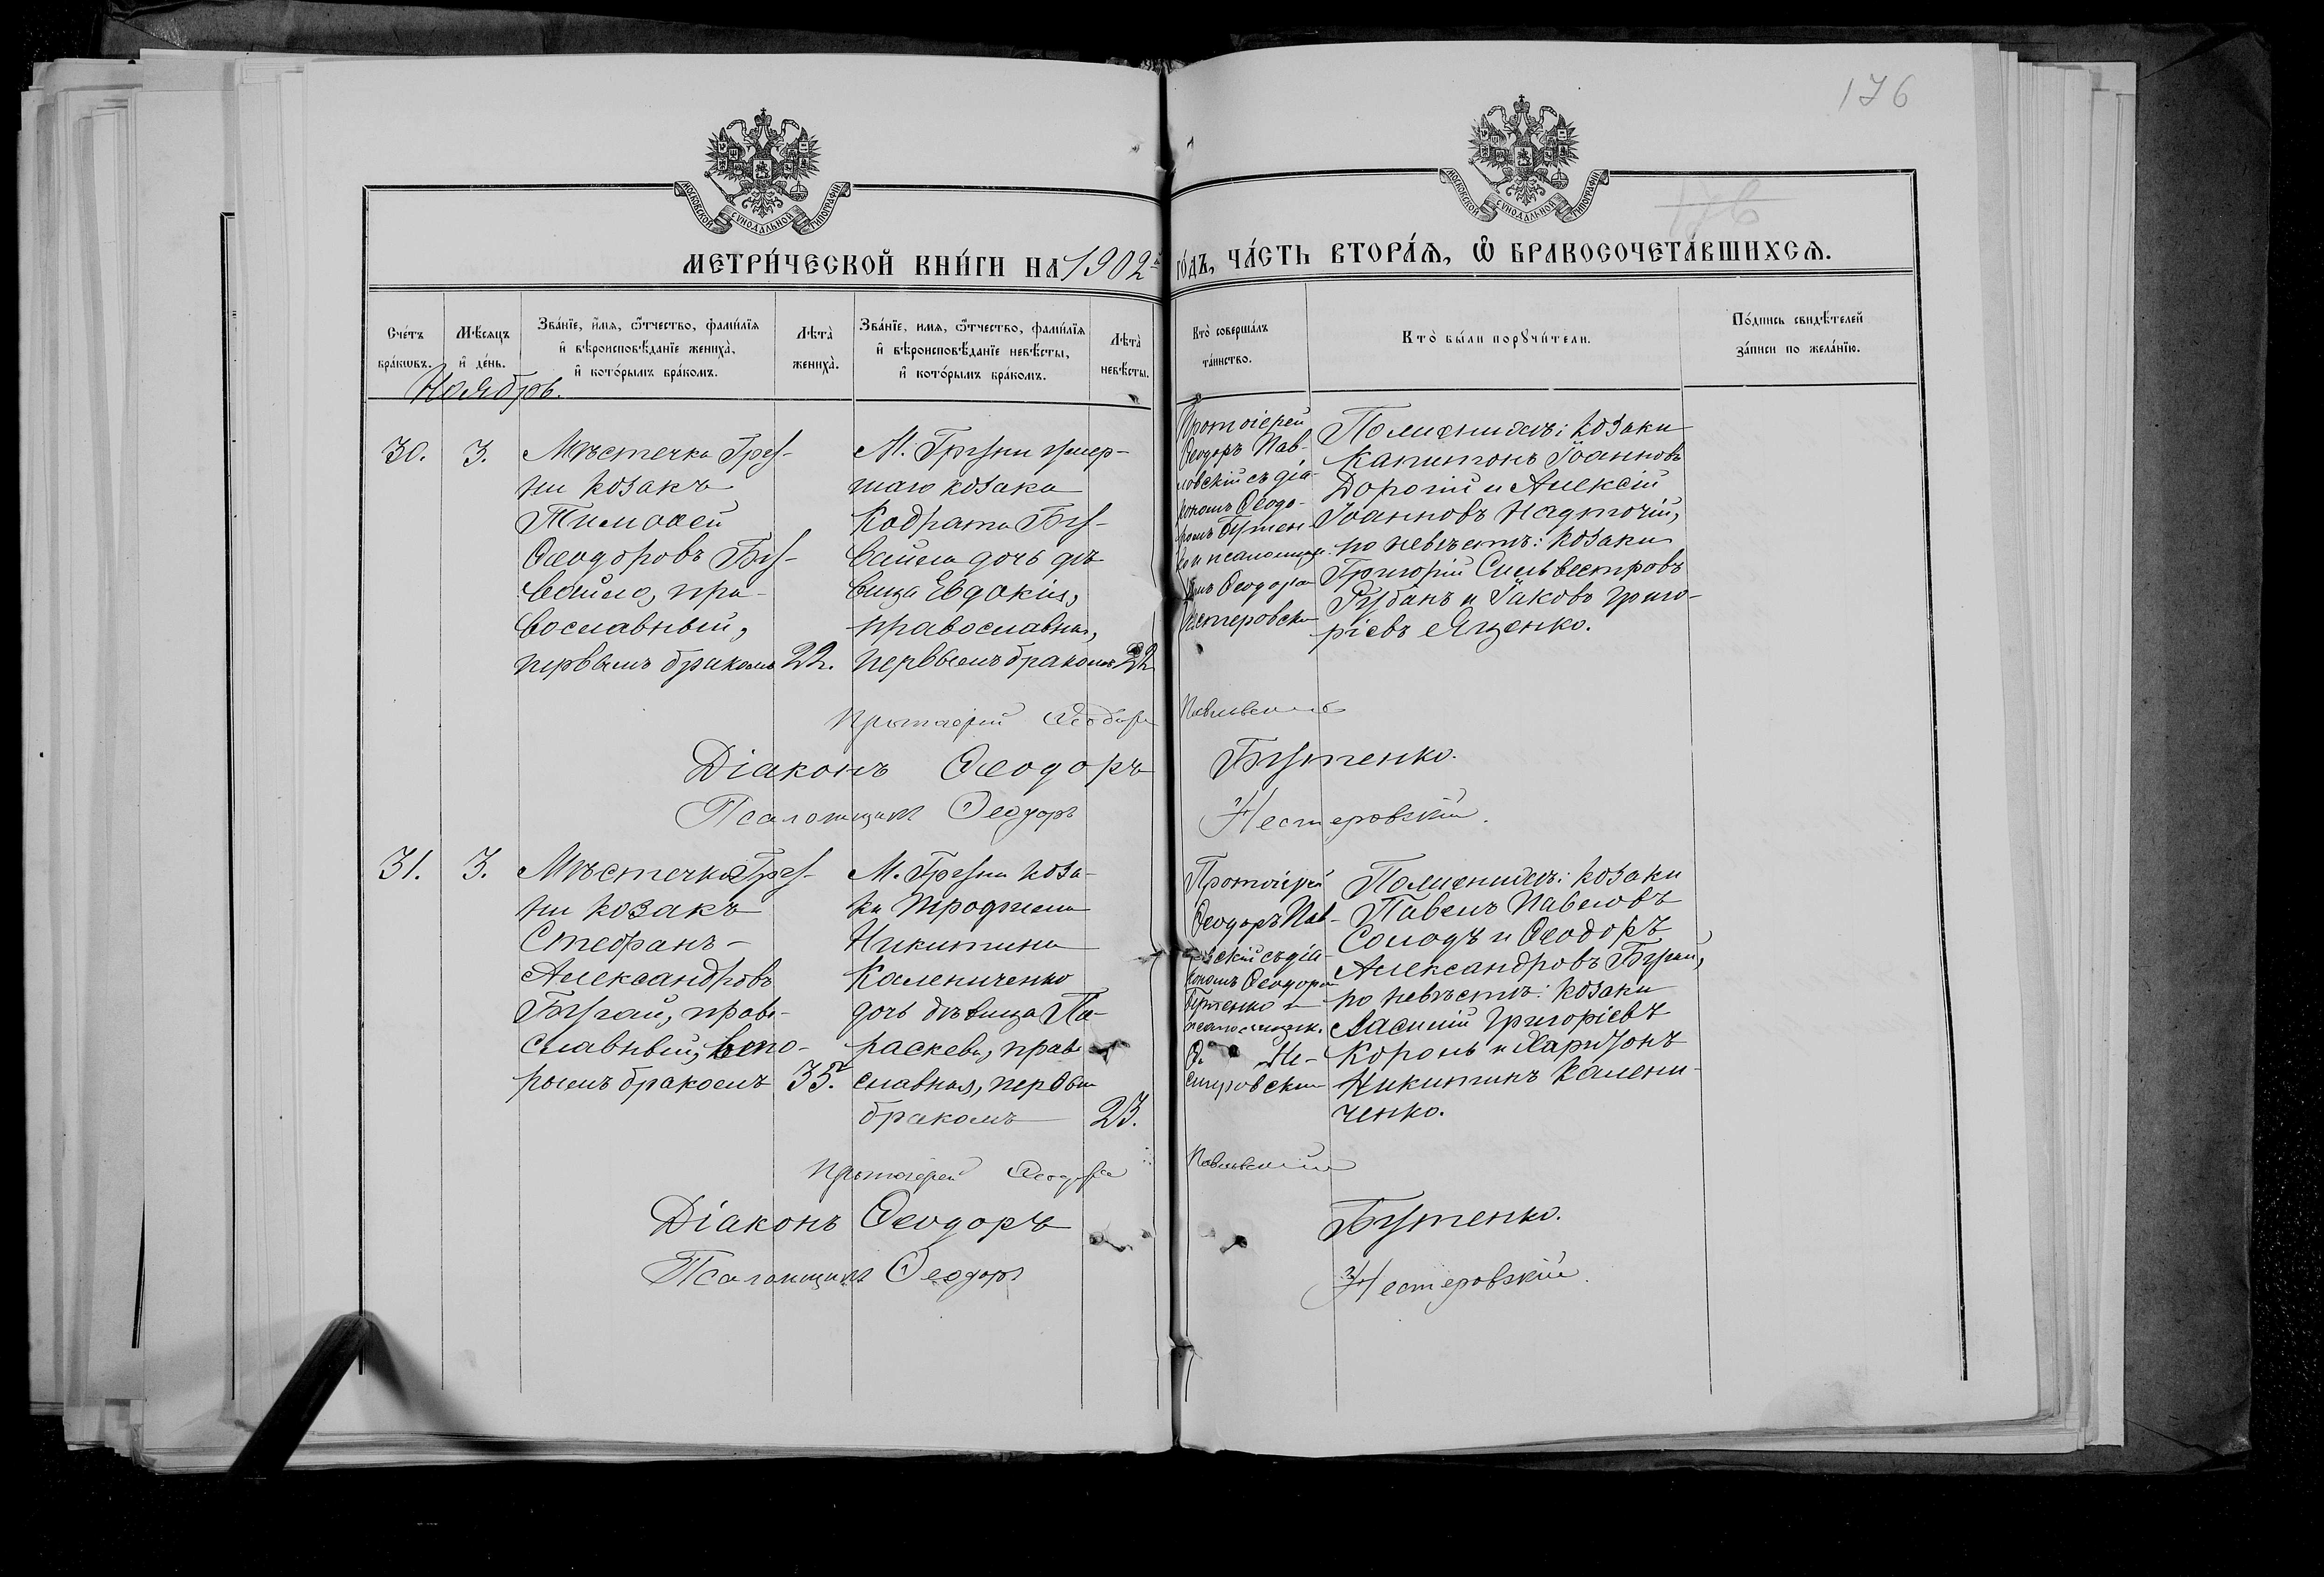 176
МОСКОВСКОЙ СѴНОДАЛЬНОЙ ТИПОГРАФІИ
МОСКОВСКОЙ СѴНОДАЛЬНОЙ ТИПОГРАФІИ
176
МЕТРИ́ЧЕСКОЙ КНИ́ГИ НА 1902 й ГО́ДЪ, ЧА́СТЬ ВТОРА́Ѧ, Ѽ БРАКОСОЧЕТА́ВШИХСѦ.
Сче́тъ
бра́кѡвъ.
Мѣ́сяцъ
и҆ де́нь.
Зва́нїе, и҆́мѧ, ѻ҆́тчество, фами́лїѧ
и҆ вѣроисповѣ́данїе жениха̀,
и҆ кото́рымъ бра́комъ.
Лѣ́та̀
жениха̀.
Зва́нїе, имѧ, ѻ҆́тчество, фами́лїѧ
и҆ вѣроисповѣ́данїе невѣ́сты,
и҆ кото́рымъ бра́комъ.
Лѣ́та̀
невѣ́сты.
Кто̀ соверша́лъ
та́инство.
Кто̀ бы́ли порꙋчи́тели.
По́дпись свидѣ́телей
за́писи по жела́нїю.
Ноябрь.
30.
3.
Мѣстечка Гру-
ни козакъ
Тимоѳей
Ѳеодоровъ Бу-
вайло, пра-
вославный,
первымъ бракомъ
22.
М. Груни умер-
шаго козака
Кодрата Бу-
вайла дочь дѣ-
вица Евдокія,
православная,
первымъ бракомъ
22
Протоіерей
Ѳеодоръ Пав-
ловскій съ діа-
кономъ Ѳеодо-
ромъ Бутен-
Ѳеодоромъ
По женихѣ: козаки
Капитонъ Іоанновъ
Дорогій и Алексій
Іоанновъ Надточій,
по невѣстѣ: козаки
Григорій Сильвестровъ
Рубанъ и Іаковъ Григо-
ріевъ Яценко.
Протоіерей Ѳеодоръ Павловскій
Діаконъ Ѳеодоръ Бутенко.
Псаломщикъ Ѳеодоръ Нестеровскій.
31.
3.
Мѣстечка Гру-
ни козакъ
Стефанъ
Александровъ
Бугай, право-
славный, вто-
рымъ бракомъ
35.
М. Груни коза-
ка Трофима
Никитина
Калениченко
дочь дѣвица Па-
раскева, право-
славная, первымъ
бракомъ
23.
Протоіерей
Ѳеодоръ Пав-
ловскій съ діа-
кономъ Ѳеодоромъ
Бутенко и
псаломщик.
Не-
стеровскимъ
По женихѣ: козаки
Павелъ Павловъ
Солодъ и Ѳеодоръ
Александровъ Бугай,
по невѣстѣ: козаки
Василій Григоріевъ
Король и Харитонъ
Никитинъ Калени-
ченко.
Протоіерей Ѳеодоръ Павловскій
Діаконъ Ѳеодоръ Бутенко.
Псаломщикъ Ѳеодоръ Нестеровскій.